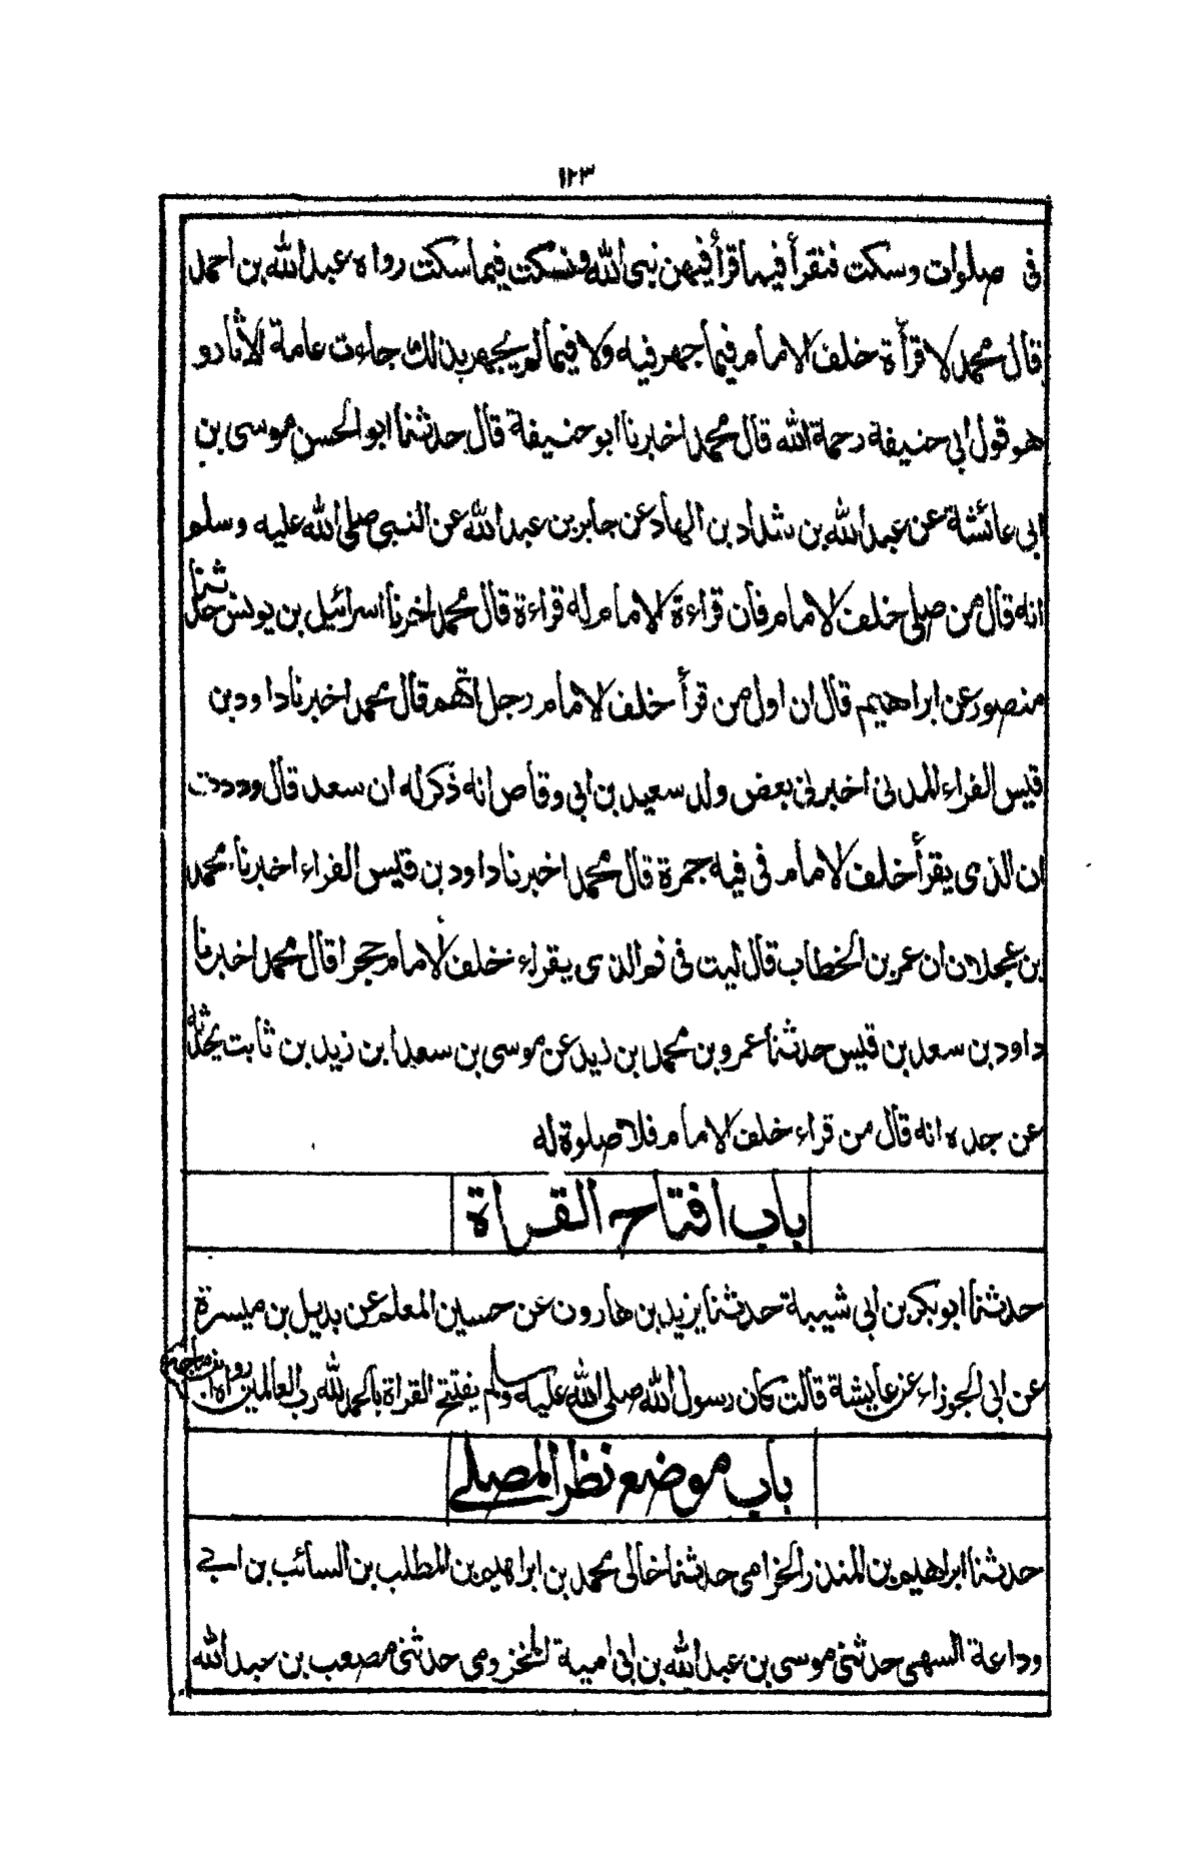 ١٢٣
فى صلوات وسكت فنقرأ فيها قرأ فيهن نبى الله ونسكت فيما سكت رواه عبدالله بن احمد
قال محمد لا قرأة خلف الامام فيما جهر فيه ولا فيما لم يجهر بذلك جاءت عامة الاثار و
هو قول ابى حنيفة رحمة الله قال محمد اخبرنا ابو حنيفة قال حدثنا ابو الحسن موسى بن
ابى عائشة عن عبدالله بن شداد بن الهاد عن جابر بن عبدالله عن النبى صلى الله عليه وسلم
انه قال من صلى خلف الامام فان قراءة الامام له قراءة قال محمد اخبرنا اسرائيل بن يونس حدثنا
منصور عن ابراهيم قال ان اول من قرأ خلف الامام رجل اتهم قال محمد اخبرنا داود بن
قيس الفراء المدنى اخبرنى بعض ولد سعيد بن ابى وقاص انه ذكر له ان سعد قال وددت
ان الذى يقرأ خلف الامام فى فيه جمرة قال محمد اخبرنا داود بن قيس الفراء اخبرنا محمد
بن عجلان ان عمر بن الخطاب قال ليت فى فم الذى يقراء خلف الامام حجرا قال محمد اخبرنا
داود بن سعد بن قيس حدثنا عمرو بن محمد بن زيد عن موسى بن سعد ابن زيد بن ثابت يحدثه
عن جده انه قال من قراء خلف الامام فلا صلوة له
باب افتتاح القراة
حدثنا ابوبكر بن ابى شيبة حدثنا يزيد بن هارون عن حسين المعلم عن بديل بن ميسرة
عن ابى الجوزاء عن عايشة قالت كان رسول الله صلى الله عليه وسلم يفتتح القراة بالحمد لله رب العالمين
باب موضع نظر المصلى
حدثنا ابراهيم بن المنذر الحزامى حدثنا خالى محمد بن ابراهيم بن المطلب بن السائب بن ابى
وداعة السهمى حدثنى موسى بن عبدالله بن ابى امية المخزومى حدثنى مصعب بن عبدالله